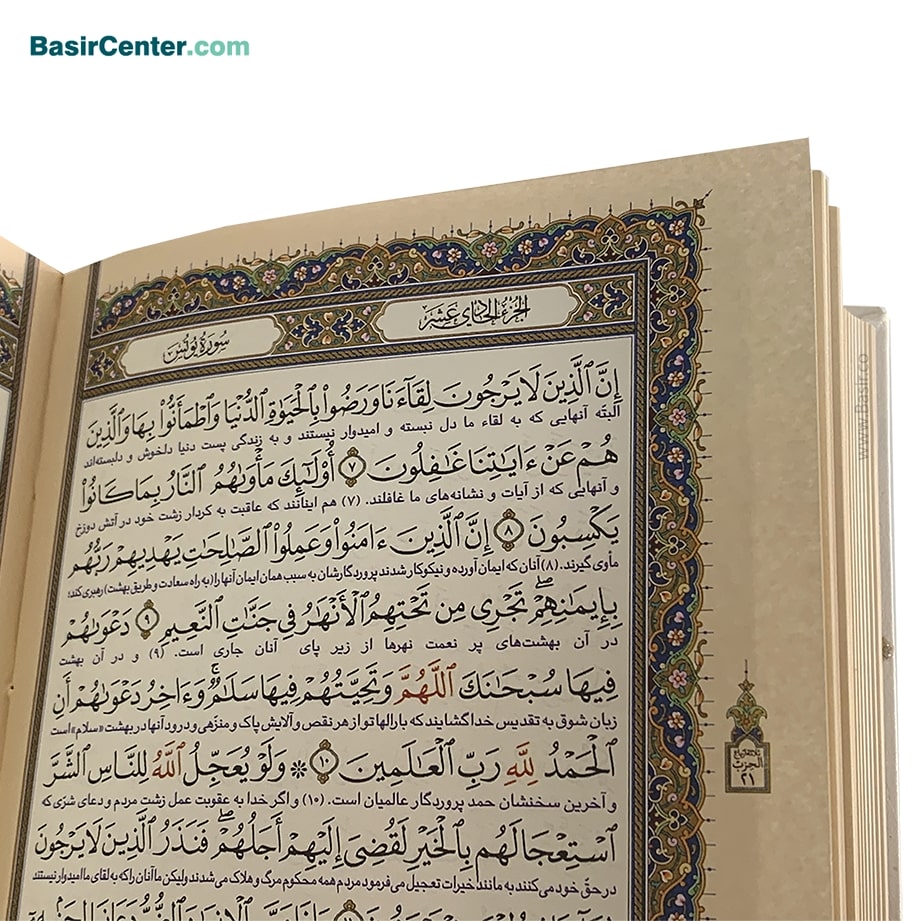 BasirCenter.com
الجزء الحادي عشر
سورة يونس
إِنَّ ٱلَّذِينَ لَا يَرْجُونَ لِقَآءَنَا وَرَضُوا۟ بِٱلْحَيَوٰةِ ٱلدُّنْيَا وَٱطْمَأَنُّوا۟ بِهَا وَٱلَّذِينَ
البته آنهایی که به لقاء ما دل نبسته و امیدوار نیستند و به زندگی پست دنیا دلخوش و دلبسته‌اند
هُمْ عَنْ ءَايَـٰتِنَا غَـٰفِلُونَ ۷ أُو۟لَـٰٓئِكَ مَأْوَىٰهُمُ ٱلنَّارُ بِمَا كَانُوا۟
و آنهایی که از آیات و نشانه‌های ما غافلند. (۷) هم اینانند که عاقبت به کردار زشت خود در آتش دوزخ
يَكْسِبُونَ ۸ إِنَّ ٱلَّذِينَ ءَامَنُوا۟ وَعَمِلُوا۟ ٱلصَّـٰلِحَـٰتِ يَهْدِيهِمْ رَبُّهُم
مأوی گیرند. (۸) آنان که ایمان آورده و نیکوکار شدند پروردگارشان به سبب همان ایمان آنها را (به راه سعادت و طریق بهشت) رهبری کند؛
بِإِيمَـٰنِهِمْ ۖ تَجْرِى مِن تَحْتِهِمُ ٱلْأَنْهَـٰرُ فِى جَنَّـٰتِ ٱلنَّعِيمِ ۹ دَعْوَىٰهُمْ
در آن بهشت‌های پر نعمت نهرها از زیر پای آنان جاری است. (۹) و در آن بهشت
فِيهَا سُبْحَـٰنَكَ ٱللَّهُمَّ وَتَحِيَّتُهُمْ فِيهَا سَلَـٰمٌ ۚ وَءَاخِرُ دَعْوَىٰهُمْ أَنِ
زبان شوق به تقدیس خدا گشایند که بارالها تو از هر نقص و آلایش پاک و منزّهی و درود آنها در بهشت «سلام» است
ٱلْحَمْدُ لِلَّهِ رَبِّ ٱلْعَـٰلَمِينَ ۱۰ ۞ وَلَوْ يُعَجِّلُ ٱللَّهُ لِلنَّاسِ ٱلشَّرَّ
و آخرین سخنشان حمد پروردگار عالمیان است. (۱۰) و اگر خدا به عقوبت عمل زشت مردم و دعای شرّی که
ٱسْتِعْجَالَهُم بِٱلْخَيْرِ لَقُضِىَ إِلَيْهِمْ أَجَلُهُمْ ۖ فَنَذَرُ ٱلَّذِينَ لَا يَرْجُونَ
در حقّ خود می‌کنند به مانند خیرات تعجیل می‌فرمود مردم همه محکوم مرگ و هلاک می‌شدند ولیکن ما آنان را که به لقای ما امیدوار نیستند
الحزب
۲۱
www.Basir.co